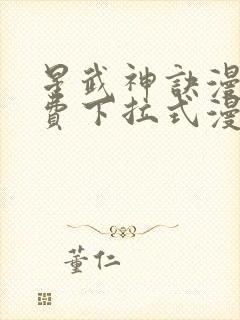 星武神訣漫
費下拉式漫
董仁